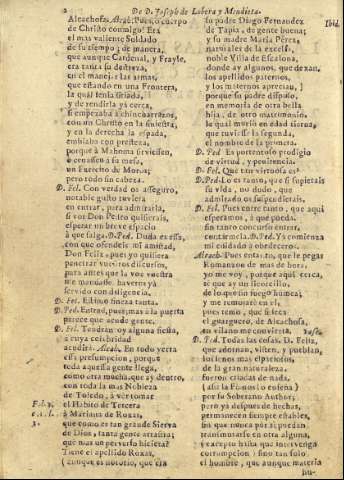 2 De D. Joseph de Lobera y Mendieta.
Alcachofas. Alcab. Pues, o cuerpo
de Christo conmalgo! Era
el mas valiente Soldado
de su tiempo; de manera,
que aunque Cardenal, y Frayle,
era tanta su destreza,
en el manejo las armas,
que estando en una Frontera,
la qual tenia sitiada,
y de rendirla yà cerca,
si empezaba à chincharrazos,
con un Christo en la siniestra,
y en la derecha la espada,
embiaba con presteza,
porque à Mahoma sirviessen,
ò cenassen à su mesa,
un Exercito de Moros,
pero todo sin cabeza.
D. Fel. Con verdad os asseguro,
notable gusto tuviera
en entrar, para admirarla,
si vos Don Pedro quisierais,
esperar un breve espacio
à que salga. D. Ped. Duda es essa,
con que ofendeis mi amistad,
Don Felix, pues yo quisiera
penetrar vuestros discursos,
para antes que la voz vuestra
me mandasse, haveros yà
servido con diligencia.
D. Fel. Estimo fineza tanta.
D. Ped. Entrad, pues; mas à la puerta
parece que acude gente.
D. Fel. Tendràn oy alguna fiesta,
à cuya celebridad
acudirà. Alcab. En todo yerra
essa presumpcion, porque
toda aquessa gente llega,
como otra mucha, que ay dentro,
con toda la mas Nobleza
de Toledo, à vèr tomar
el Habito de Tercera
à Mariana de Roxas,
que como es tan grande Sierva
de Dios, tanta gente arrastra;
què mas un perverso hiciera?
Tiene el apellido Roxas,
(aunque es notorio, que era
F. l. 1.
c. 1. l.
3.
su padre Diego Fernandez
de Tapia, de gente buena;
y su madre Maria Perez,
naturales de la excelsa,
noble Villa de Escalona,
donde ay algunos, que dexan
los apellidos paternos,
y los maternos aprecian)
porque su padre dispuso,
en memoria de otra bella
hija, de otro matrimonio,
la qual muriò en edad tierna,
que tuviesse la segunda,
el nombre de la primera.
D. Ped. Es portentoso prodigio
de virtud, y penitencia.
D. Fel. Que tan virtuosa es?
D. Ped. Lo es tanto, que si supierais
su vida, no dudo, que
admirado os suspendierais.
D. Fel. Pues entre tanto, que aqui
esperamos, à que pueda
sin tanto concurso entrar,
contarmela. D. Ped. Yà comienza
mi cuidado à obedeceros.
Alcab. Pues entanto, que le pegas
Romanzon de mas de hora,
yo me voy, porque aqui cerca,
sè que ay un licorcillo,
de lo que sin fuego humea,
y me remojarè en el,
pues temo, que si seca
el guarguero, de Alcachofa,
en villano me convierta. vase.
D. Ped. Todas las cosas, D. Felix,
que adornan, visten, y pueblan,
los senos mas espaciosos,
de la gran naturaleza,
fueron criadas de nada,
(assi la Fisonosìo enseña)
por su Soberano Author,
pero yà despues de hechas,
permanecen siempre en sì,
sin que nunca por sì puedan
transmutarse en otra alguna,
y excepto hasta que intervenga
corrupcion, sino tan solo
el hombre, que aunque materia
hu-
Ibid.